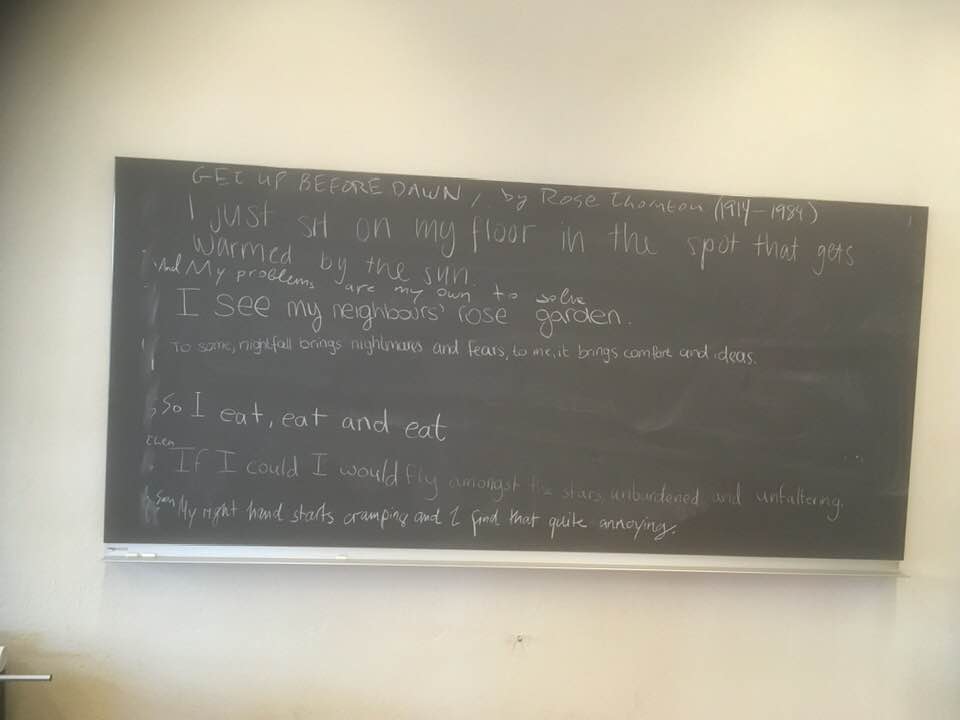 GET UP BEFORE DAWN, by Rose Thornton (1914-1984)
I just sit on my floor in the spot that gets
warmed by the sun.
And My problems are my own to solve
I see my neighbours' rose garden.
To some, nightfall brings nightmares and fears, to me, it brings comfort and ideas.
So I eat, eat and eat
then
If I could I would fly amongst the stars, unburdened and unfaltering.
...
Soon My right hand starts cramping and I find that quite annoying.